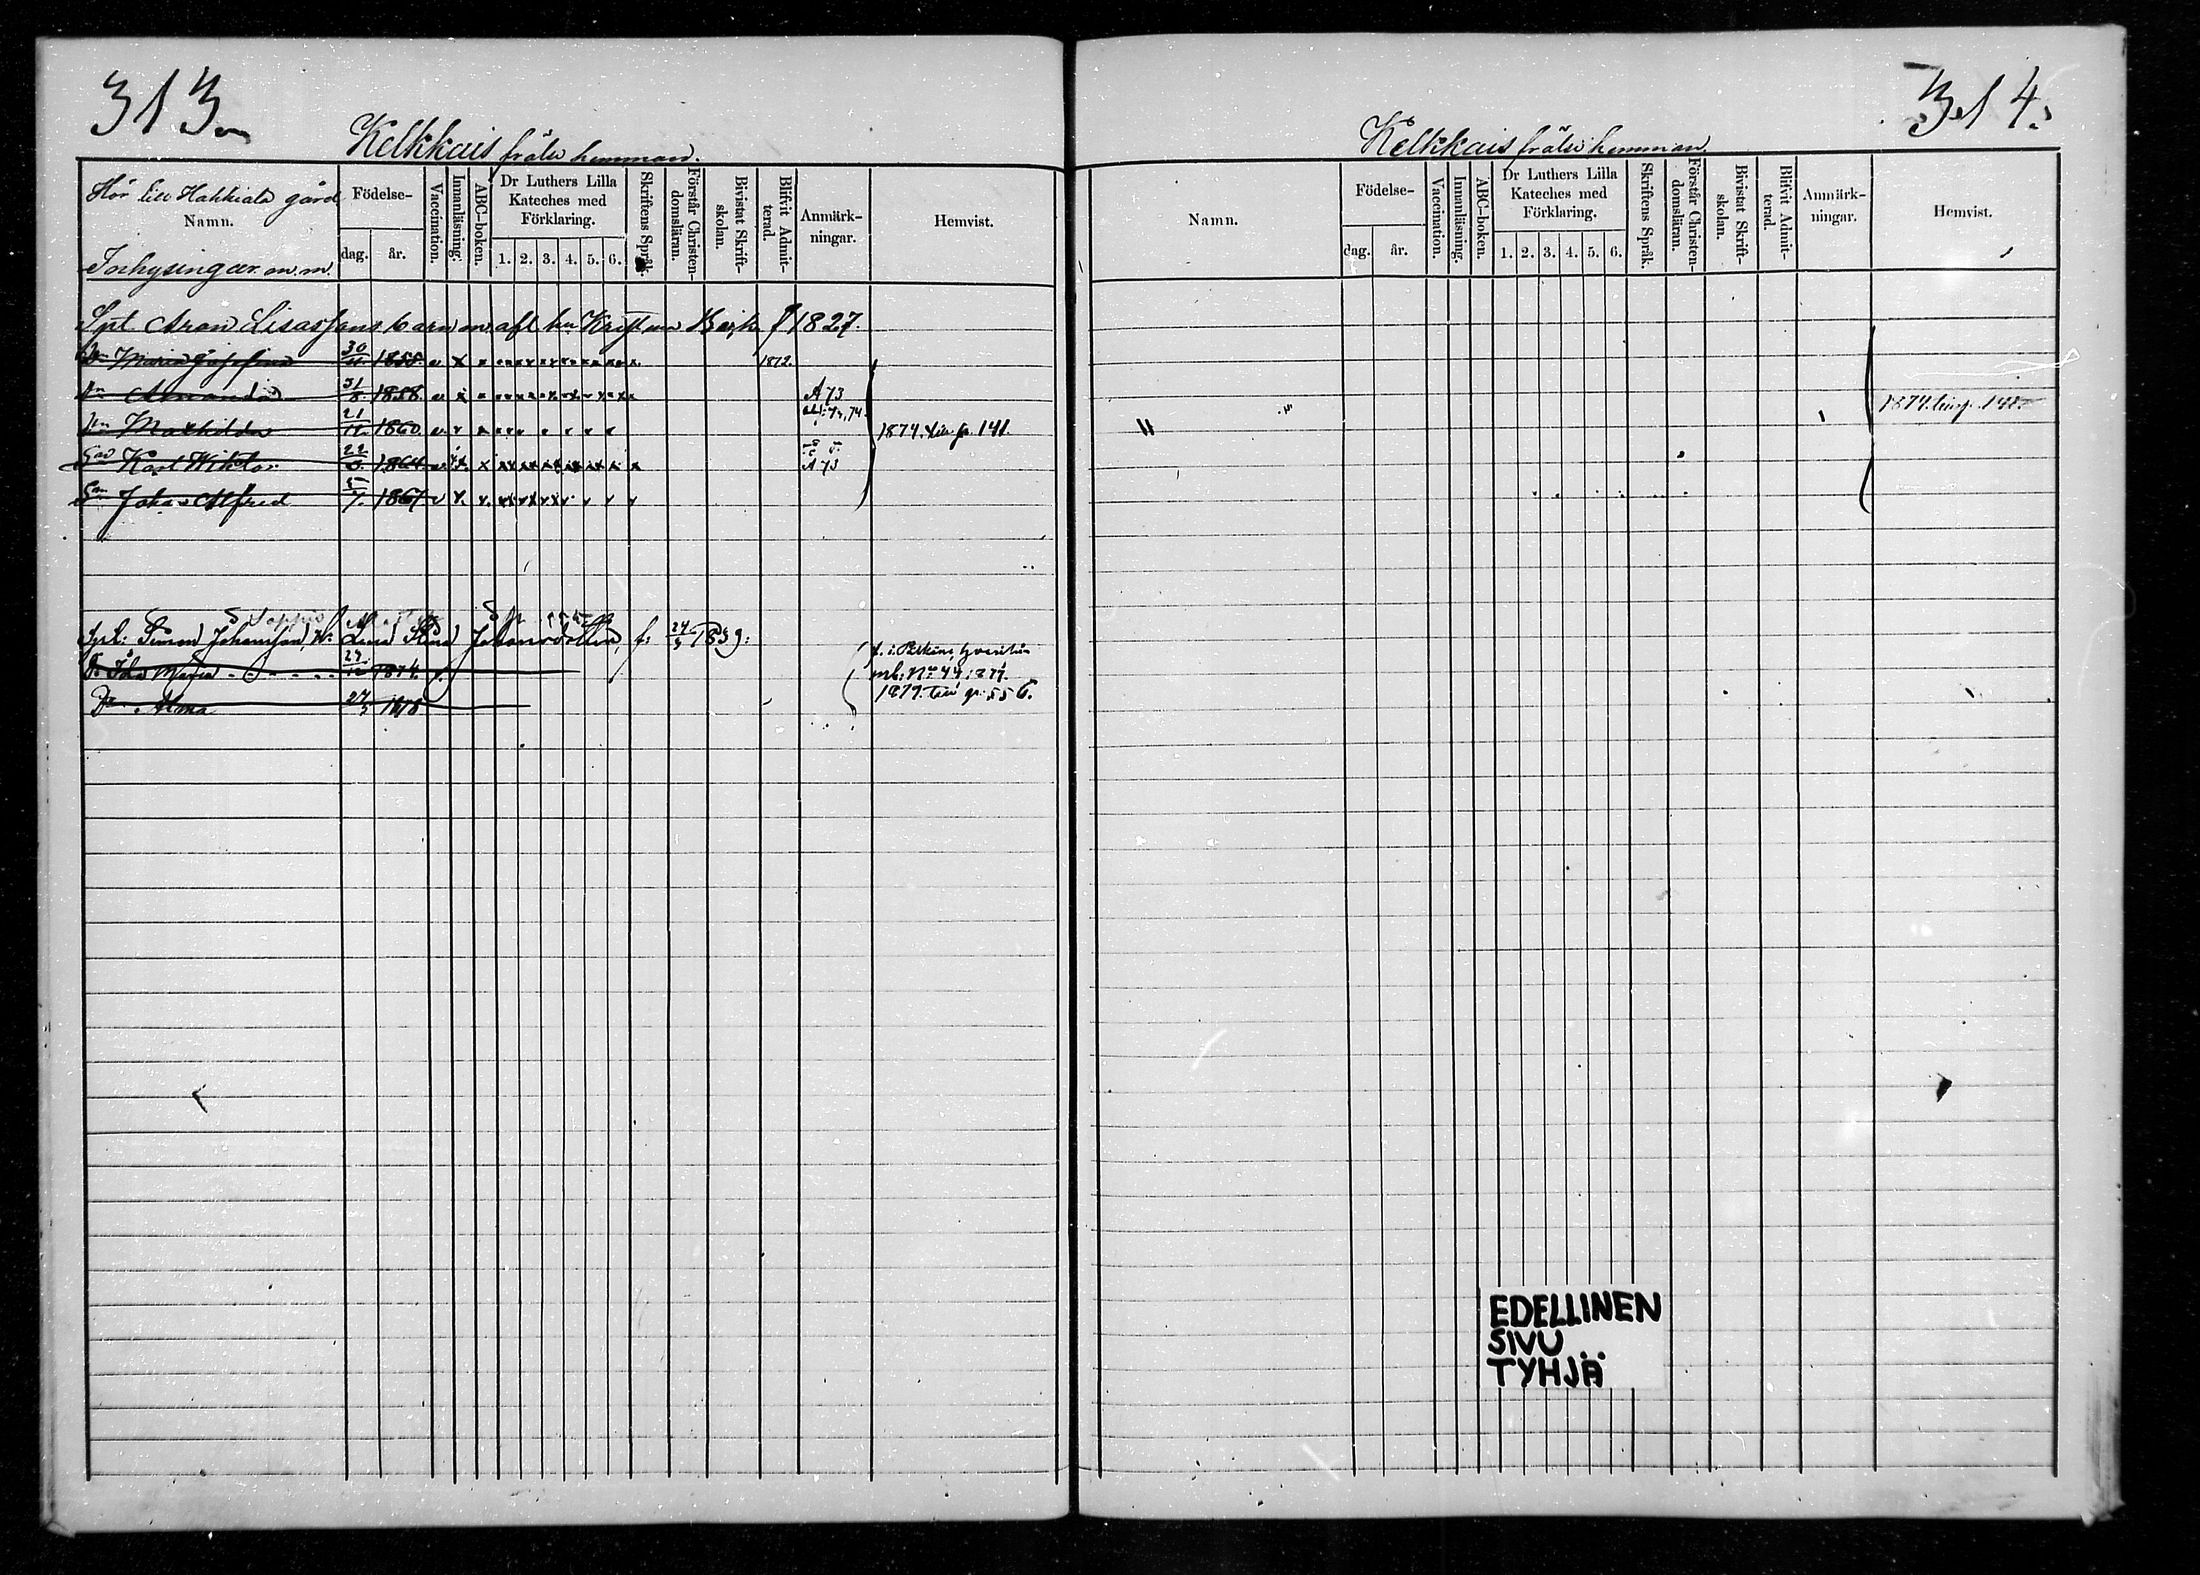 313
Kelkkais frälse hemman.
Hör till Hahkiala gård
Namn.
Inhysingar m. m.
Födelse-
dag. år.
Vaccination.
Innanläsning.
ABC-boken.
Dr Luthers Lilla
Kateches med
Förklaring.
1. 2. 3. 4. 5. 6.
Skriftens Språk.
Förstår Christen-
domsläran.
Bivistat Skrift-
skolan.
Blifvit Admit-
terad.
Anmärk-
ningar.
Hemvist.
Aron barn m. afl. hu f 1827.
Dr Maria Josefina 30/11 1855. 1872.
Dr Amanda 31/8 1858. A 73
Dr Mathilda 21/11 1860. 1874. 141.
Sn Karl Wiktor 22/6 1864 A 73
Sn Johan Alfred 5/7. 1867
Sophia
Simon Johansson, H. Lena Stina Johansdotter, f: 24/5 1839:
Dr Ida Maria 1874.
mb: No 44: 1877.
Dr Alma 27/5 1878
1879. 556.
314.
Kelkkais frälse hemman
Namn.
Födelse-
dag. år.
Vaccination.
Innanläsning.
ABC-boken.
Dr Luthers Lilla
Kateches med
Förklaring.
1. 2. 3. 4. 5. 6.
Skriftens Språk.
Förstår Christen-
domsläran.
Bivistat Skrift-
skolan.
Blifvit Admit-
terad.
Anmärk-
ningar.
Hemvist.
1874. 141.
EDELLINEN
SIVU
TYHJÄ